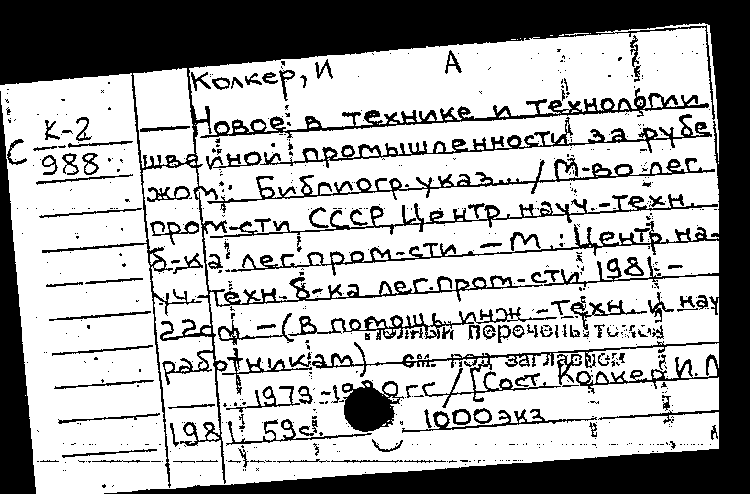 Колкер, И А
К-2 Новое в технике и технологии
С 988 швейной промышленности за рубе
жом: Библиогр. указ... / М-во лег.
пром-сти СССР, Центр. науч.-техн.
б-ка лег. пром-сти. – М.: Центр. на-
уч.-техн. б-ка лег. пром-сти 1981. –
22см. – (В помощь инж.-техн. и нау
Полный перечень томов
работникам)
см. под заглавием
1979-1980 гг / [Сост. Колкер И. Л
1981. 59с. 1000 экз